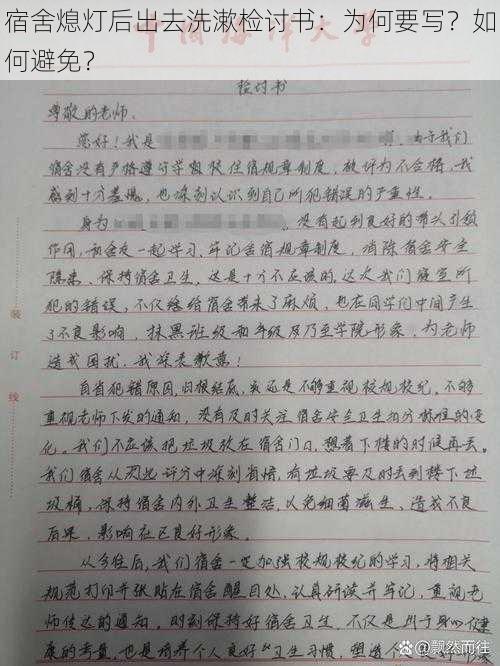 宿舍熄灯后出去洗漱检讨书：为何要写？如
何避免？
中国海洋大学
检讨书
尊敬的老师：
您好！我是 由于我们
宿舍没有严格遵守学校住宿规章制度，被评为不合格，我
感到十分羞愧，也深刻认识到自己所犯错误的严重性。
身为 。没有起到良好的带头引领
作用，和舍友一起学习、牢记舍规规章制度，消除宿舍安全
隐患、保持宿舍卫生，这是十分不应该的。这次我们寝室所
犯的错误，不仅给宿舍带来了麻烦，也在同学们中间产生
了不良影响，抹黑班级和年级及乃至学院形象，为老师
造成困扰，我深表歉意！
自省犯错原因，归根结底，实还是不够重视校规校纪，不够
重视老师下发的通知，没有及时关注宿舍安全卫生扣分标准的变
化。我们不应该把垃圾放在宿舍门口，想着下楼的时候再丢。
我们宿舍从此评分中深刻省悟，有垃圾要及时丢到楼下垃
圾桶，保持宿舍内外卫生整洁，以免细菌滋生、造成不良
后果，影响社区良好形象。
从今往后，我们宿舍一定加强校规校纪的学习，将相关
规范打印并张贴在宿舍醒目处，认真研读并牢记，重视老
师传达的通知，时刻保持好宿舍卫生。不仅是出于身心健
康的考量，也是培养个人良好卫生习惯，塑造个
装
订
线
@飘然而往